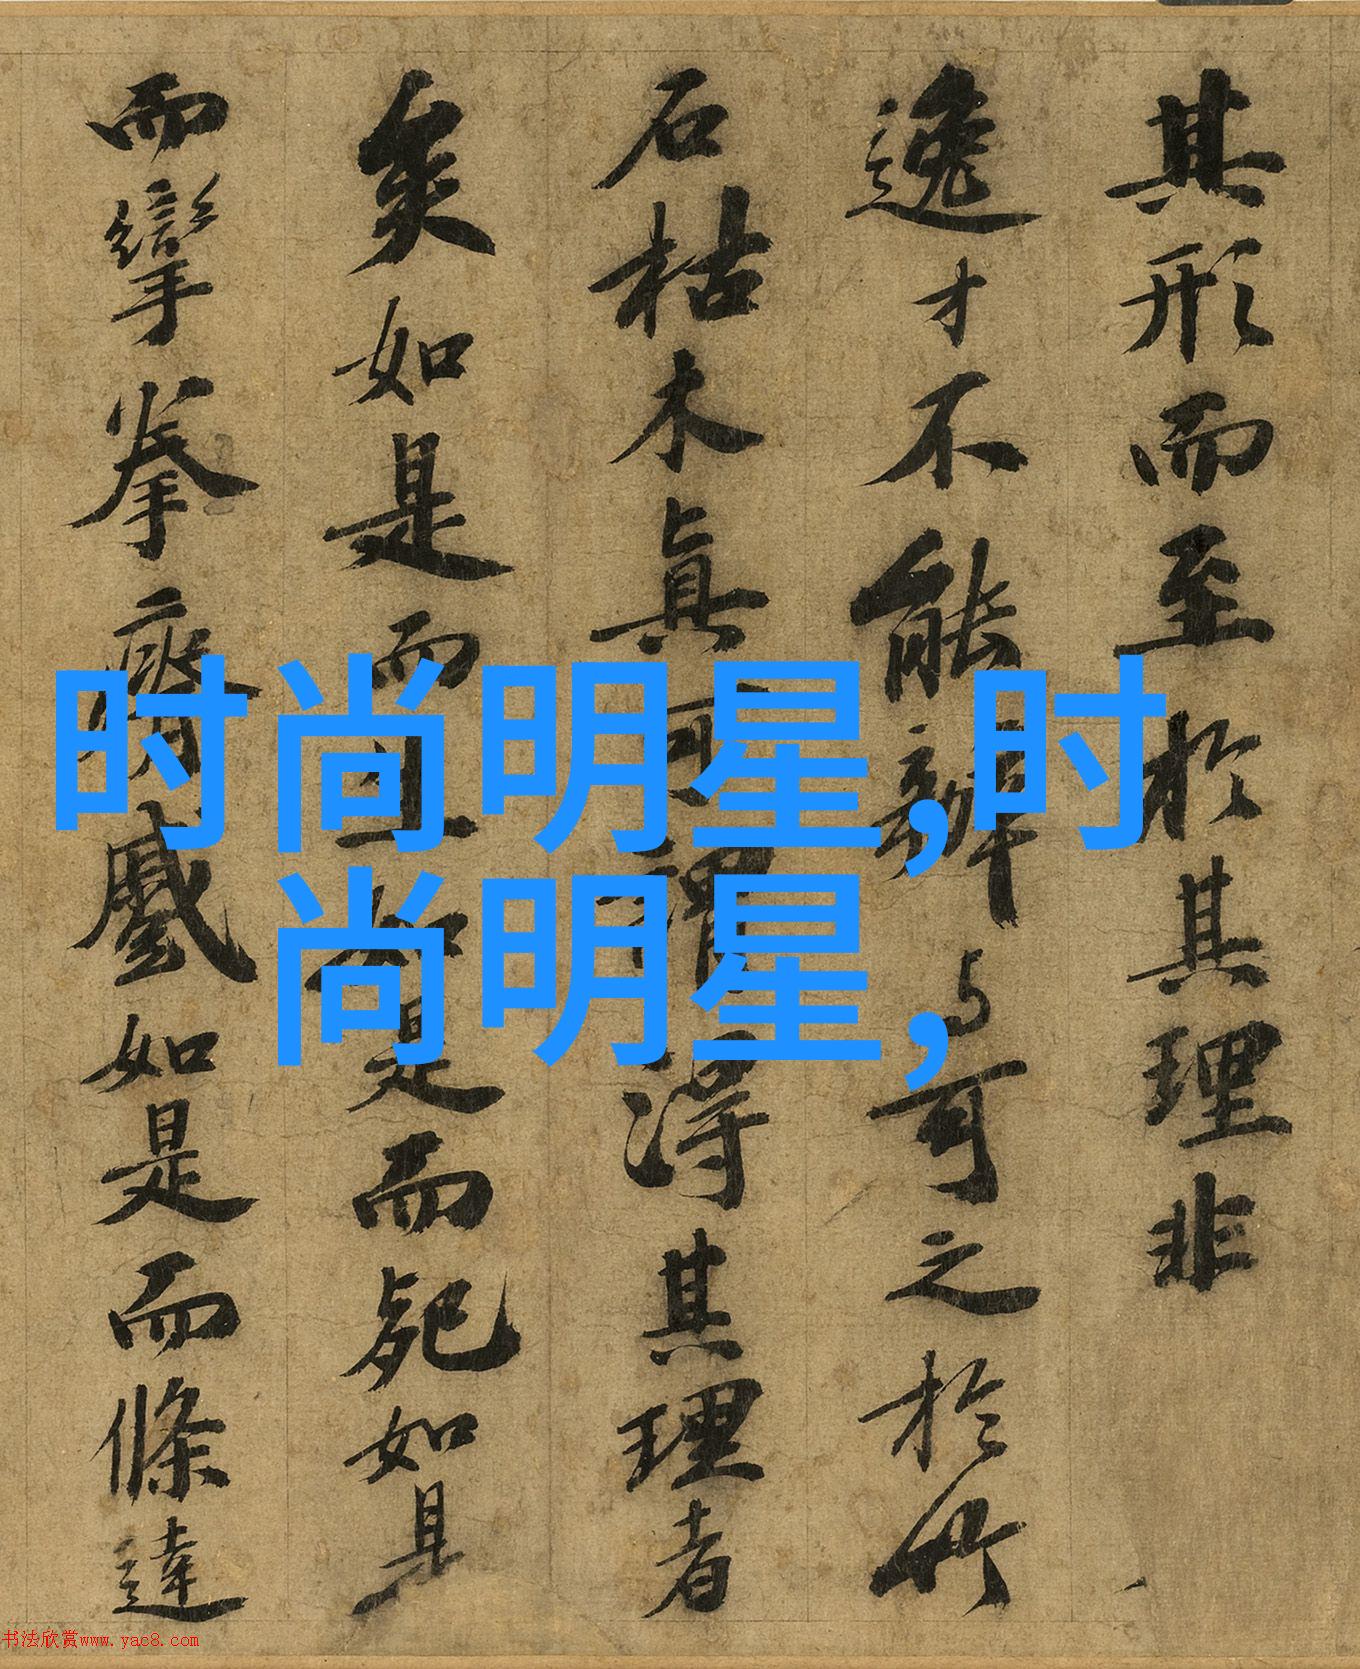 其形而至於其理非
逸才不能辦与可之於竹
石枯木真可謂得其理者
矣如是而生如是而死如是
而攣拳瘠蹙如是而條達
时尚明星,时
尚明星,
书法欣赏www.yac8.com